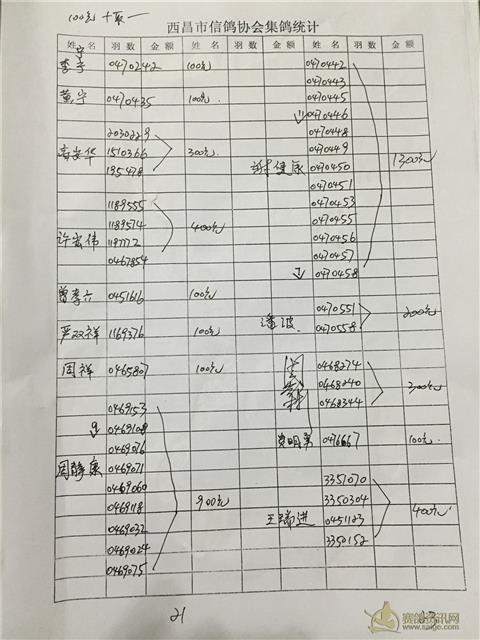 100元 十取一
西昌市信鸽协会集鸽统计
姓 名 羽数 金额 姓 名 羽数 金额
李 0470242 100元
黄宁 0470435 100元
2030229
高安华 1510366 300元
195478
1189555
1189574
许宏伟 1197772 400元
0467854
曾李六 0451616 100元
严双祥 1169376 100元
周祥 0465807 100元
0469153
0469108
0469076
周静康 0469071
0469060
0469118 900元
0469032
0469024
0469075
0470442
0470443
0470445
0470446
0470448
0470449
谢健康 0470450 1300元
0470451
0470453
0470455
0470456
0470457
0470458
0470551
潘波 0470558 200元
0468274
0468240 300元
0468344
黄明 0476667 100元
3351070
3350304
王瑞进 0451123 400元
3350152
21
赛鸽资讯网
www.saige.com